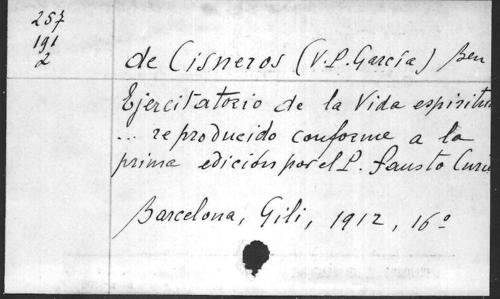 257
191
2
de Cisneros (V.P. García) Ben
Ejercitatorio de la Vida espiritu
... reproducido conforme a la
prima edición por el P. Fausto Curu
Barcelona, Gili, 1912, 16º